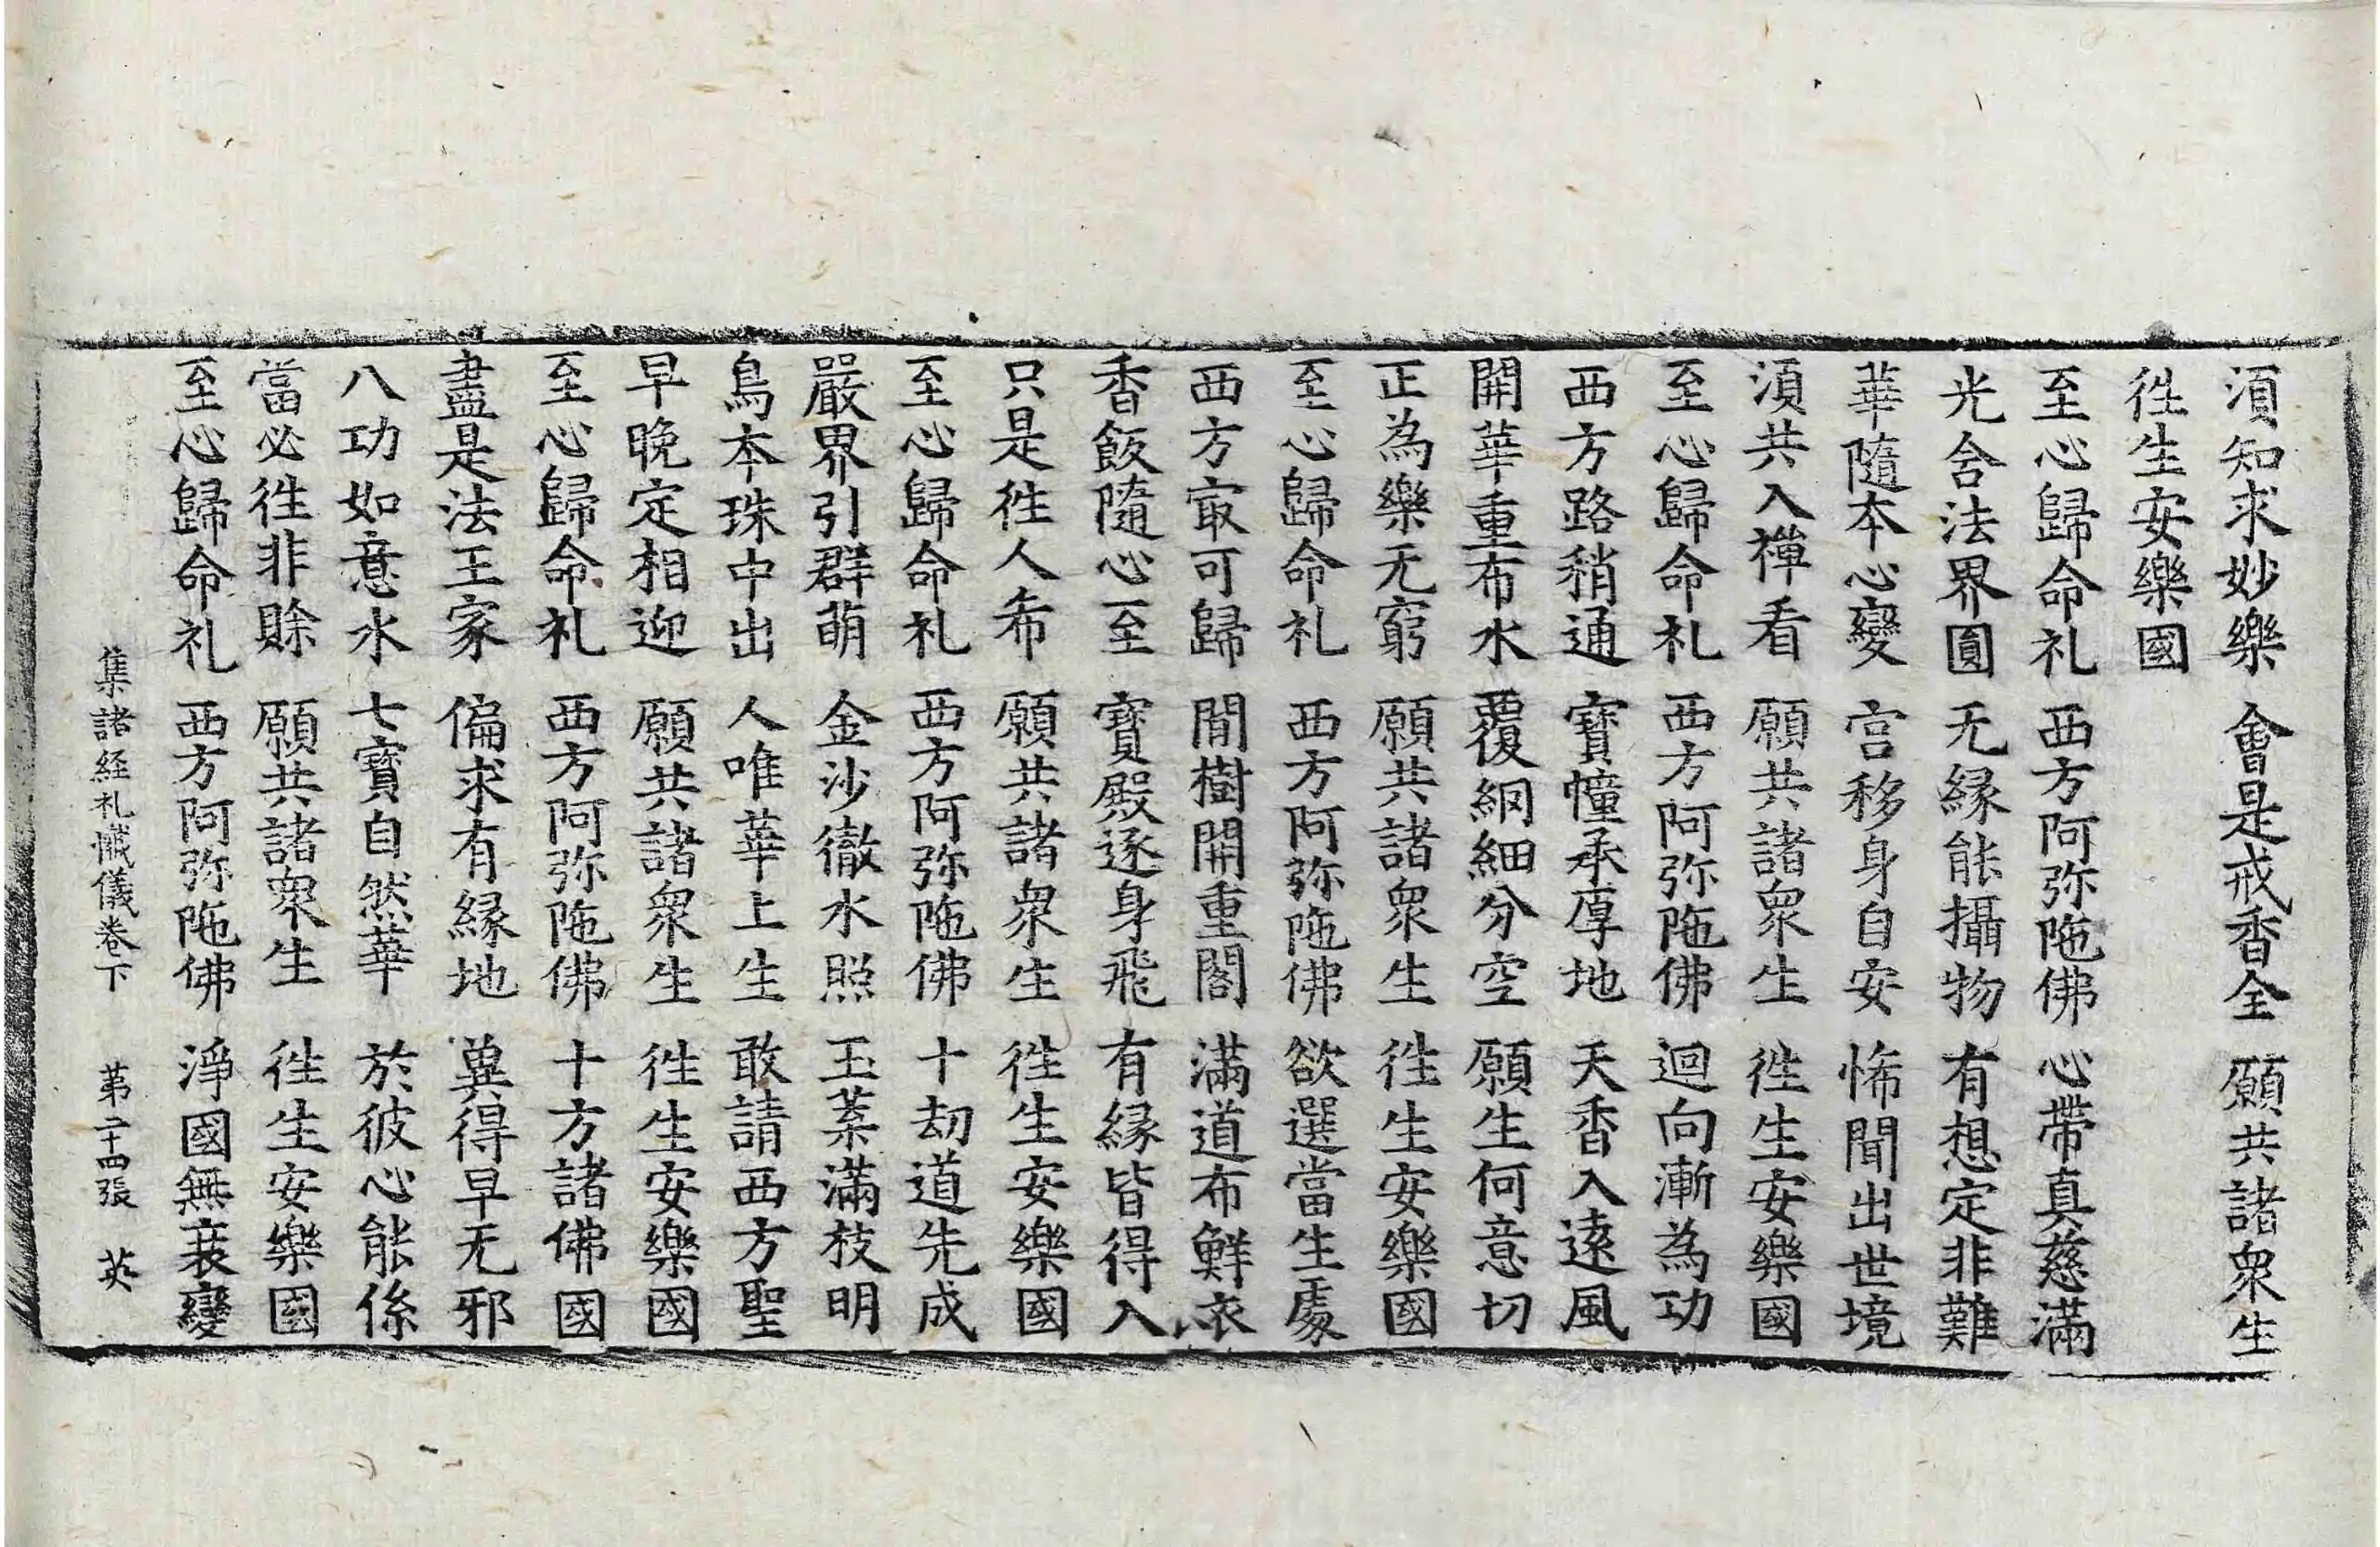 湏知求妙樂　會是戒香全　願共諸衆生
徃生安樂國
至心歸命礼　西方阿弥陁佛　心帶真慈滿
光含法界圓　无縁能攝物　有想定非難
華隨本心變　宫移身自安　悕聞出世境
湏共入禪看　願共諸衆生　徃生安樂國
至心歸命礼　西方阿弥陁佛　迴向漸為功
西方路稍通　寶幢承厚地　天香入遠風
開華重布水　覆網細分空　願生何意切
正為樂无窮　願共諸衆生　徃生安樂國
至心歸命礼　西方阿弥陁佛　欲選當生處
西方㝡可歸　間樹開重閣　滿道布鮮衣
香飯隨心至　寶殿逐身飛　有縁皆得入
只是徃人希　願共諸衆生　徃生安樂國
至心歸命礼　西方阿弥陁佛　十劫道先成
嚴界引群萌　金沙徹水照　玉葉滿枝明
鳥本珠中出　人唯華上生　敢請西方聖
早晚定相迎　願共諸衆生　徃生安樂國
至心歸命礼　西方阿弥陁佛　十方諸佛國
盡是法王家　偏求有縁地　兾得早无邪
八功如意水　七寶自然華　於彼心能係
當必徃非賒　願共諸衆生　徃生安樂國
至心歸命礼　西方阿弥陁佛　淨國無衰變
集諸経礼懺儀卷下　苐二十四張　英